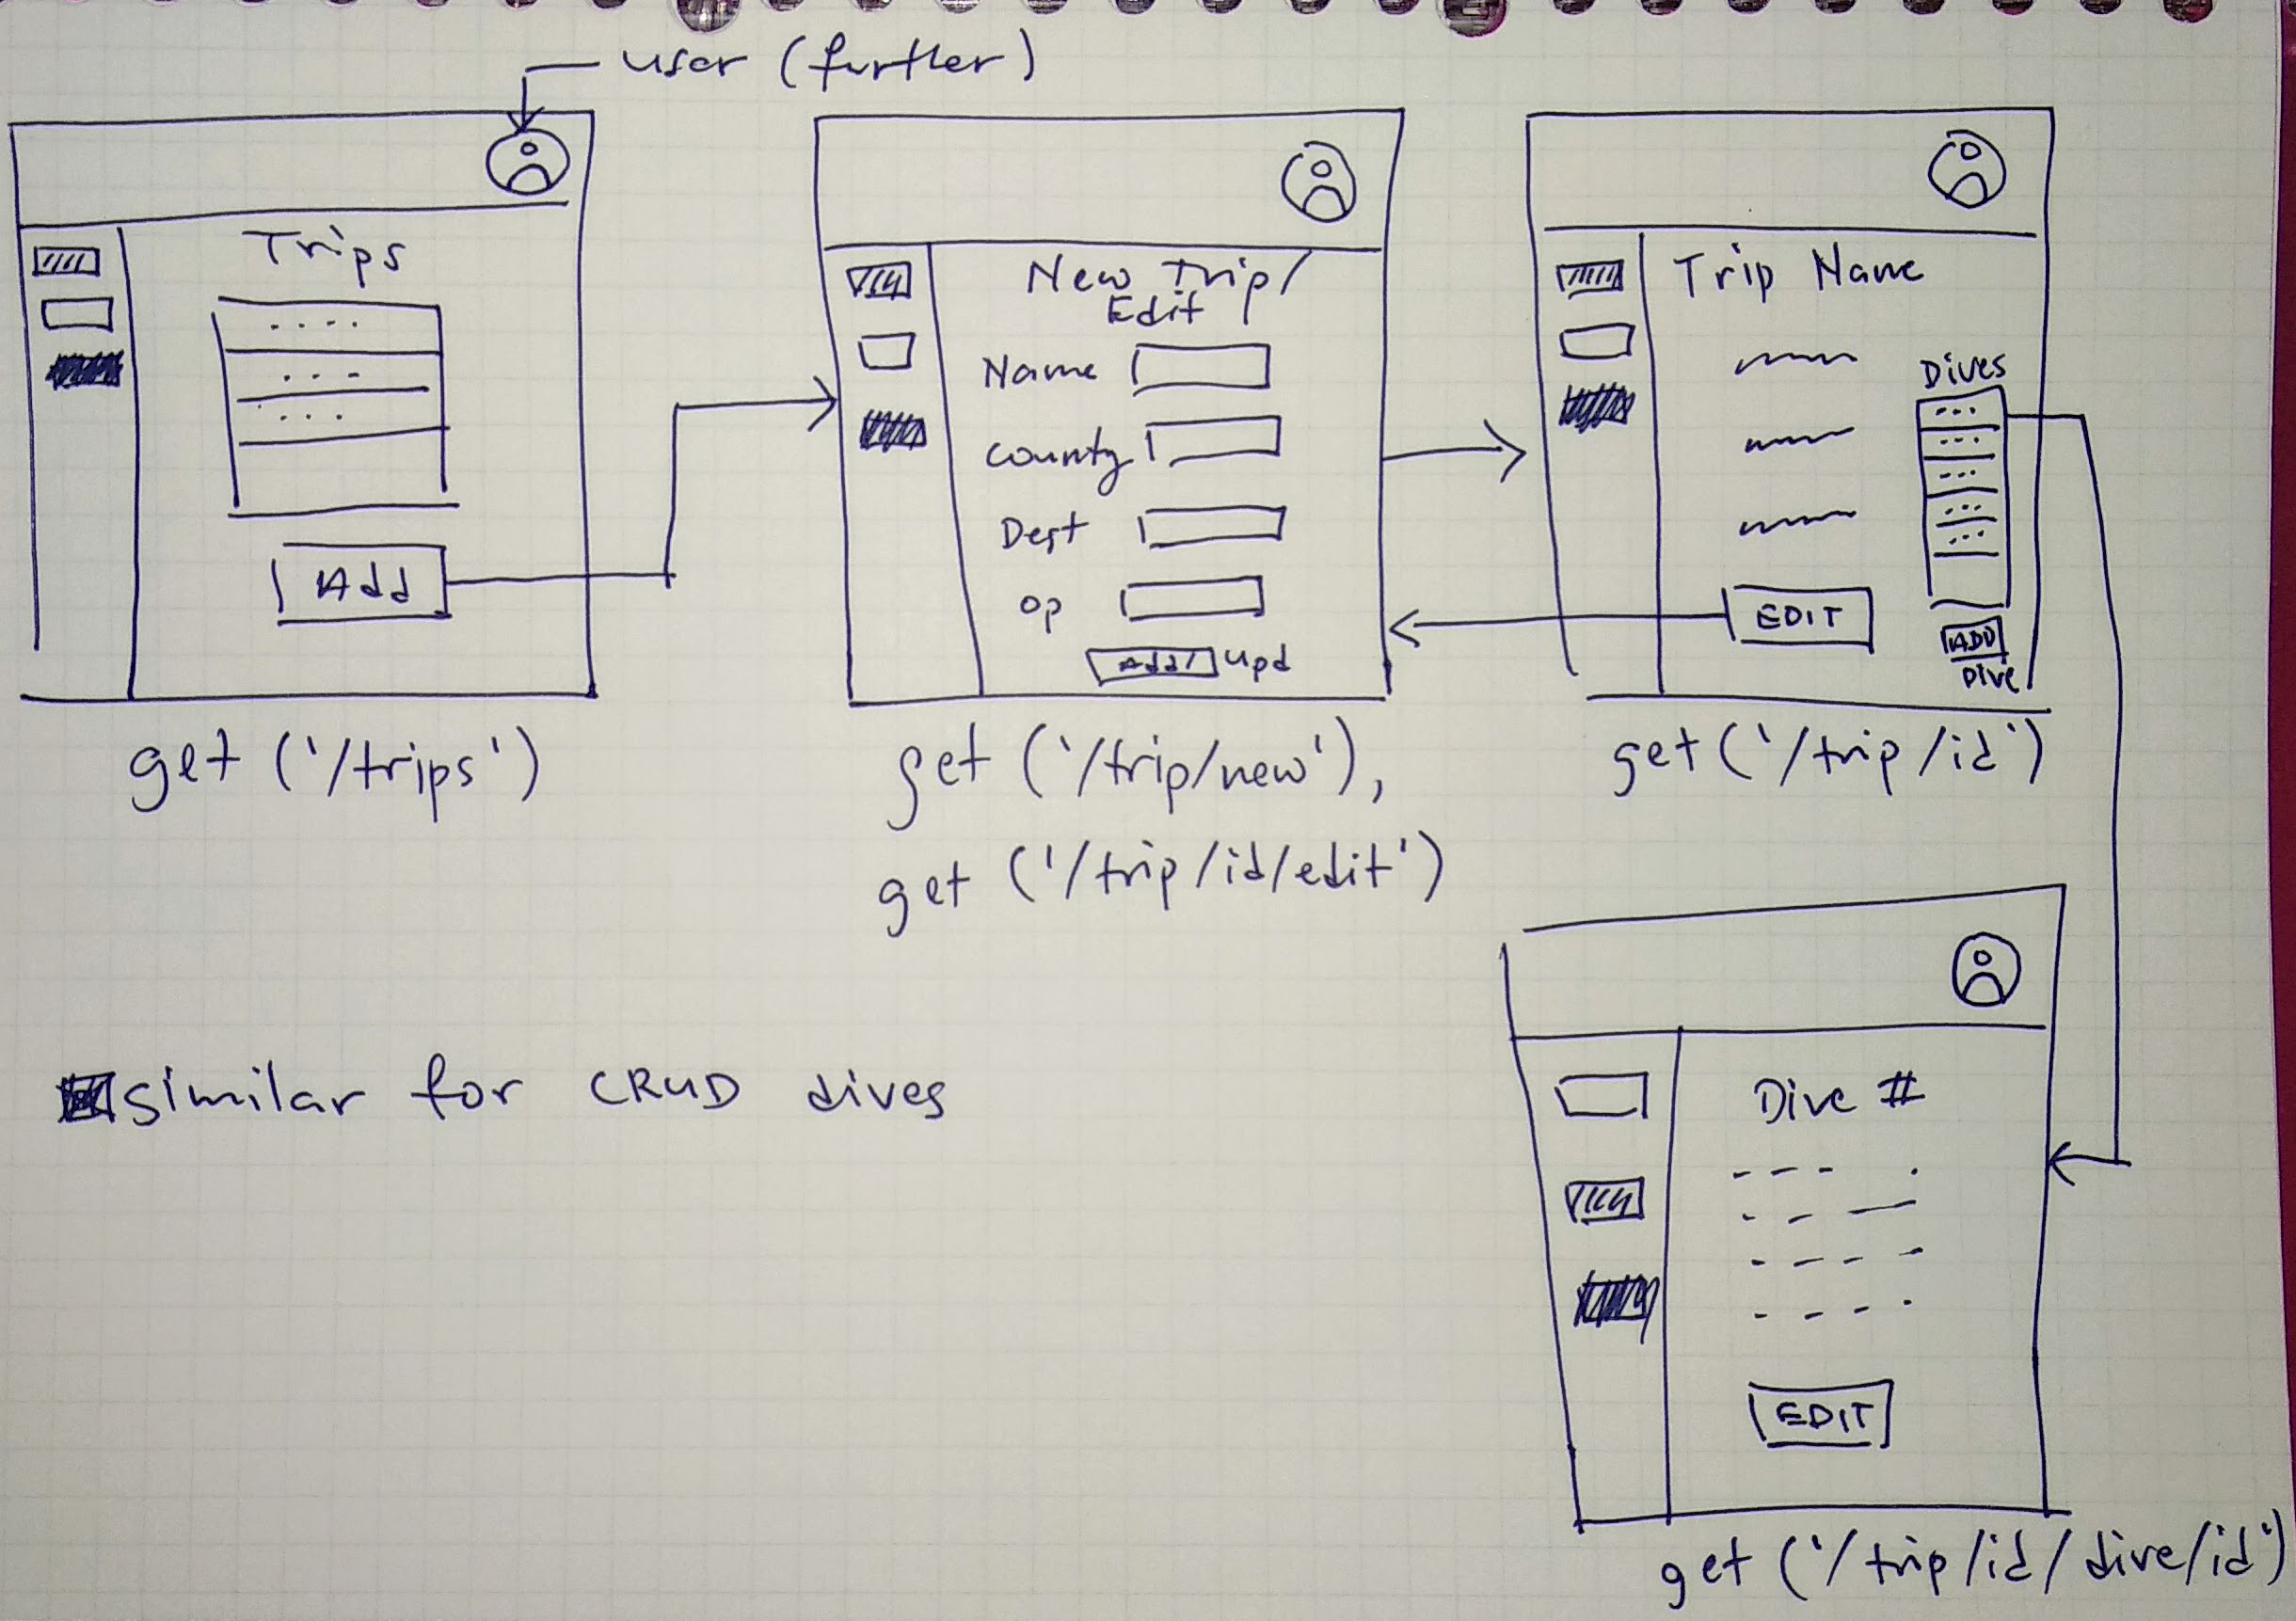 user (further)
Trips
Add
get ('/trips')
New Trip/
Edit
Name
County
Dest
Op
Add/ upd
get ('/trip/new'),
get ('/trip/id/edit')
Trip Name
Dives
EDIT
ADD
Dive
get ('/trip/id')
similar for CRUD dives
Dive #
EDIT
get ('/trip/id/dive/id')